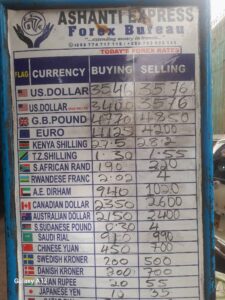 ASHANTI EXPRESS
Forex Bureau
...extending money in hands
TODAY'S FOREX RATES
FLAG CURRENCY BUYING SELLING
US.DOLLAR 3540 3576
US.DOLLAR 3400 3576
G.B.POUND 4770 4850
EURO 4125 4200
KENYA SHILLING 27.5 28.2
T.Z.SHILLING 1.30 1.55
S.AFRICAN RAND 190 220
RWANDESE FRANC 2.02 4
A.E. DIRHAM 940 1020
CANADIAN DOLLAR 2350 2600
AUSTRALIAN DOLLAR 2150 2400
S.SUDANESE POUND 0.30 4
SAUDI RIAL 910 990
CHINESE YUAN 450 700
SWEDISH KRONER 200 500
DANISH KRONER 200 700
INDIAN RUPEE 20 55
JAPANESE YEN 12 35